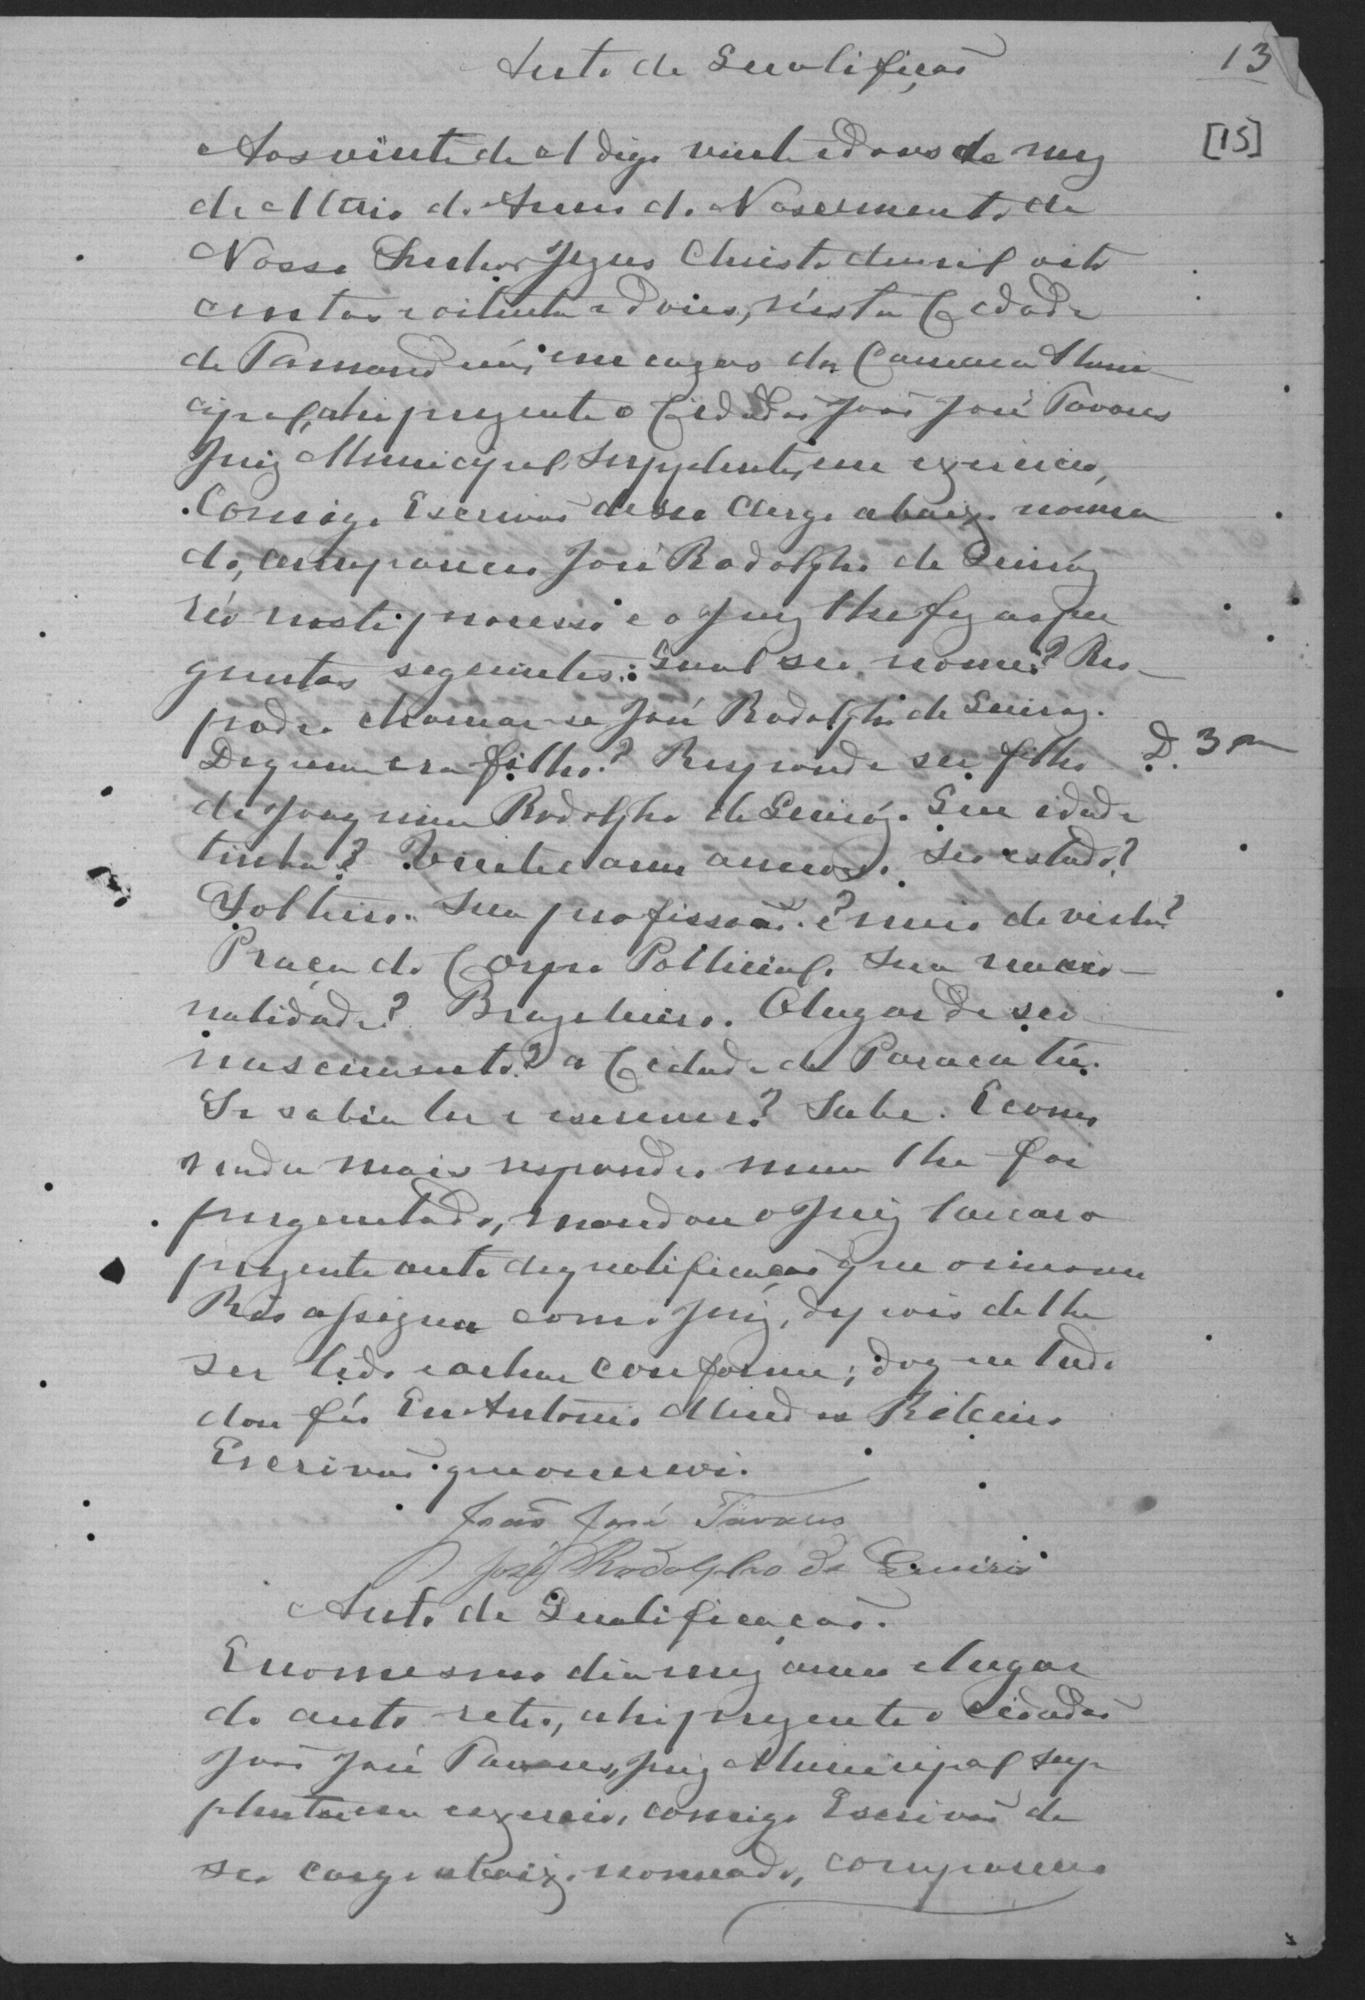 Auto de Qualificação
13
[15]
Aos vinte de el digo vinte e dous do mez
de Maio do Anno do Nascimento de
Nosso Senhor Jezus Christo de mil oito
centos e oitenta e dois, nésta Cidade
de Tamanduá, em cazas da Camara Muni-
cipal, ahi prezente o Cidadão João José Tavares
Juiz Municipal Supplente, em exercicio,
Comigo Escrivão de seo Cargo abaixo nomea
do, compareceo José Rodolpho de Queiróz
réo neste processo e o Juiz lhe fez as per
guntas seguintes: Qual seo nome? Res-
pondeo chamar-se José Rodolpho de Queiroz.
De quem era filho? Responde ser filho
D. 3
de Joaquim Rodolpho de Queiróz. Que idade
tinha? Vinte annos. Seo estado?
Solteiro. Sua profissão é? meio de vida?
Praça do Corpo Pollicial. Sua nacio-
nalidade? Brazileiro. O lugar de seo
nascimento? a Cidade de Paracatú.
Se sabia ler e escrever? Sabe. E como
nada mais respondeo nem lhe foi
preguntado, mandou o Juiz lavrar o
prezente auto de qualificação que o mesmo
Réo assigna com o Juiz, depois de lhe
ser lido e achar conforme; do que tudo
dou fé. Eu Antonio Mendes Ribeiro
Escrivão que o escrevi.
João José Tavares
José Rodolpho de Queiros
Auto de Qualificação.
E no mesmo dia mez anno e lugar
do auto retro, ahi prezente o Cidadão
João José Tavares, Juiz Municipal sup
plente em exercicio, comigo Escrivão de
seo cargo abaixo nomeado, compareceo